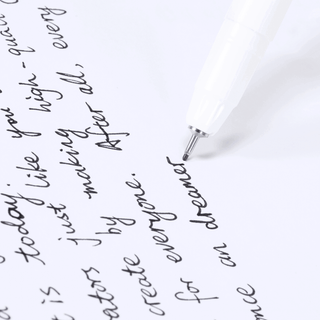 t is today.
ators just like you
create by making high-quali
for everyone. After all, every
nce an dreamer